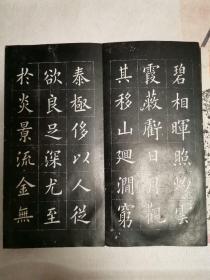 碧相暉照灼雲
霞蔽虧日月觀
其移山廻澗窮
泰極侈以人從
欲良足深尤至
於炎景流金無